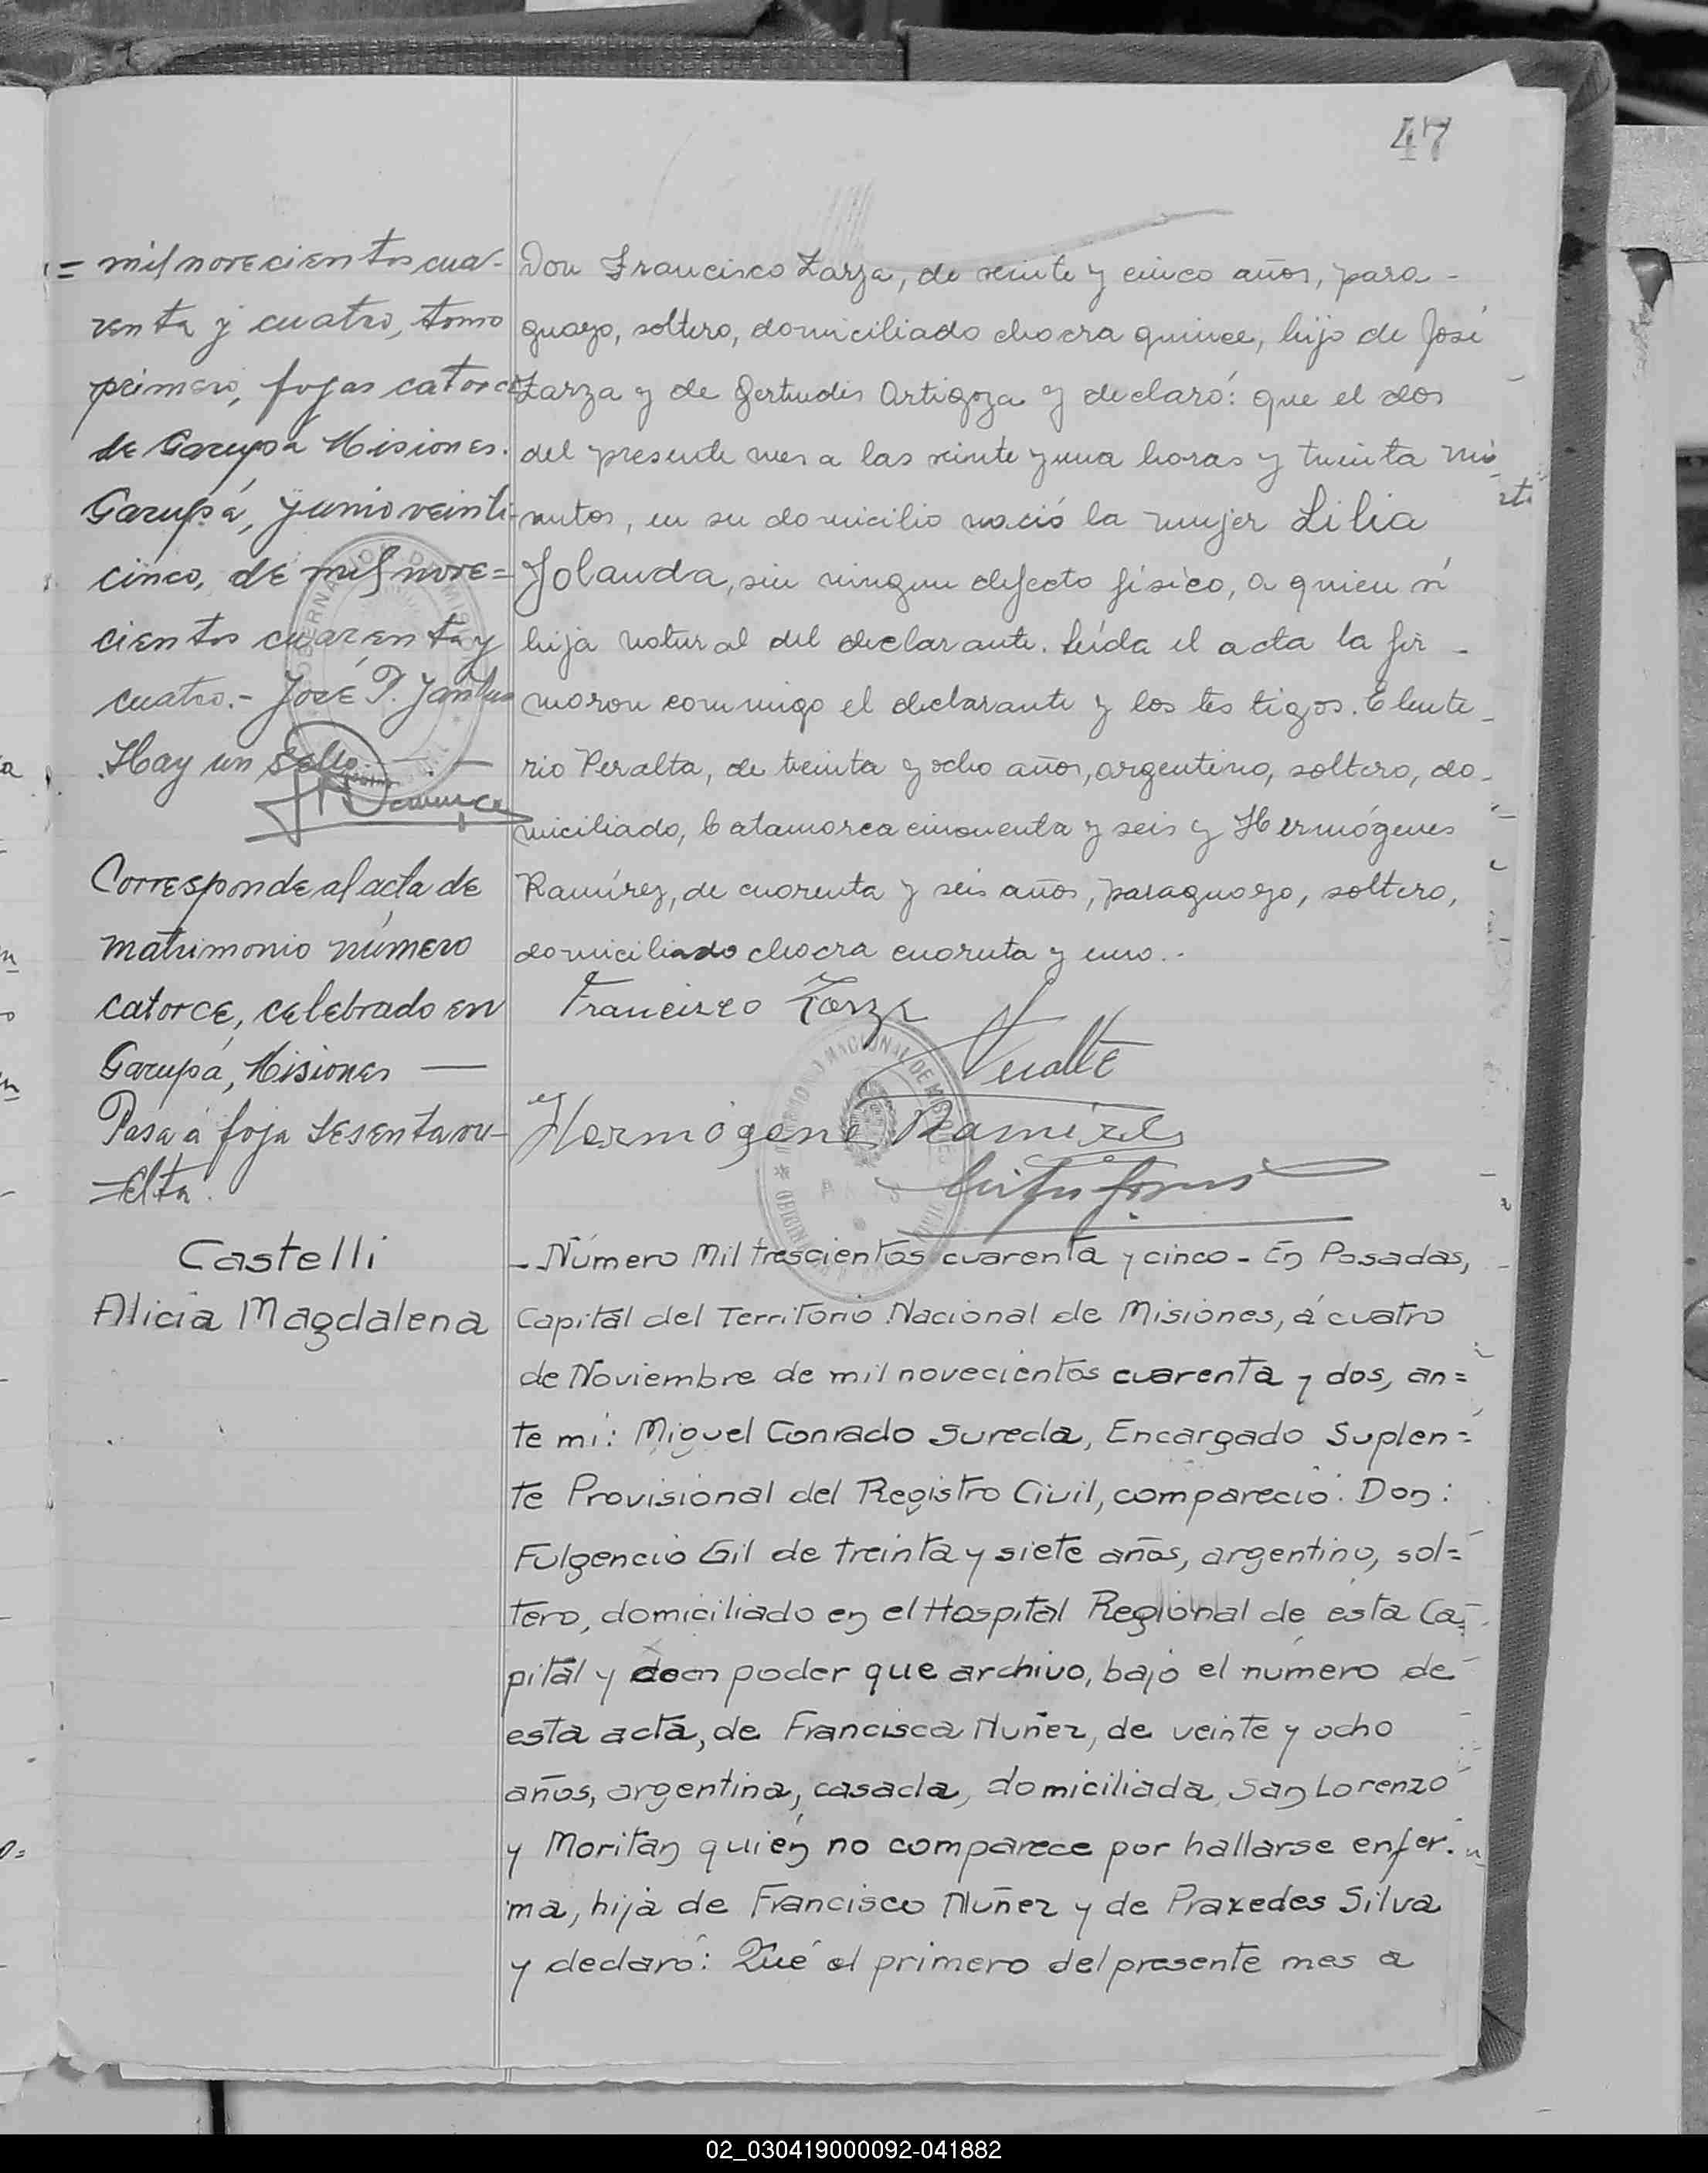 47
= mil novecientos cua-
renta y cuatro, tomo
primero, fojas catorce
de Garupá Misiones.
Garupá, junio veinti-
cinco, de mil nove=
cientos cuarenta y
cuatro.- José P.
Hay un sello. —
Corresponde al acta de
matrimonio número
catorce, celebrado en
Garupá, Misiones —
Pasa a foja sesenta vu-
=elta.
Don Francisco Zarza, de veinte y cinco años, para-
guayo, soltero, domiciliado chacra quince, hijo de José
Zarza y de Gertrudis Artigoza y declaró: que el dos
del presente mes a las veinte y una horas y treinta mi-
nutos, en su domicilio nació la mujer Lilia
Jolanda, sin ningun defecto físico, a quien ví
hija natural del declarante. Leída el acta la fir-
maron conmigo el declarante y los testigos. Eleute-
rio Peralta, de treinta y ocho años, argentino, soltero, do-
miciliado, Catamarca cincuenta y seis y Hermógenes
Ramírez, de cuarenta y seis años, paraguayo, soltero,
domiciliado chacra cuarenta y uno..
Francisco Zarza
Peralta
Hermógene Ramirez
Castelli
Alicia Magdalena
- Número Mil trescientos cuarenta y cinco - En Posadas,
Capital del Territorio Nacional de Misiones, á cuatro
de Noviembre de mil novecientos cuarenta y dos, an=
te mí: Miguel Conrado Sureda, Encargado Suplen=
te Provisional del Registro Civil, compareció: Don:
Fulgencio Gil de treinta y siete años, argentino, sol=
tero, domiciliado en el Hospital Regional de ésta Ca=
pital y con poder que archivo, bajo el número de
esta acta, de Francisca Nuñez, de veinte y ocho
años, argentina, casada, domiciliada San Lorenzo
y Moritan quién no comparece por hallarse enfer.
ma, hija de Francisco Nuñez y de Praxedes Silva
y declaró: Qué el primero del presente mes a
02_030419000092-041882